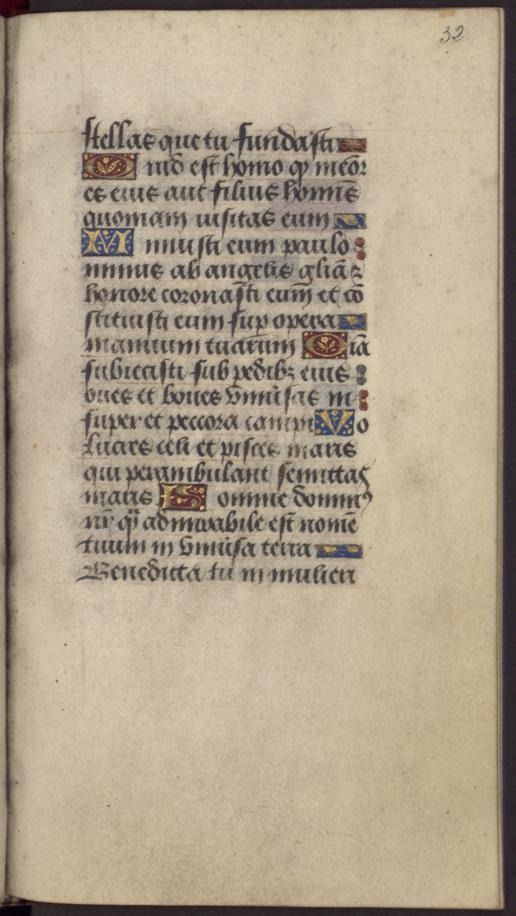 32
stellas que tu fundasti
Quid est homo qp meōr
es eius aut filius homīs
quoniam uisitas eum
Minuisti eum paulo
minus ab angelis gliā ⁊
honore coronasti eum et cō
stituisti eum sup opera
manuum tuarum Oīa
subiecisti sub pedibz eius
oues et boues vniūsas in
super et peccora campi Vo
lucres celi et pisces maris
qui perambulant semitas
maris Domine domin⁹
nr̄ qͣ admirabile est nomē
tuum in vniūsa terra
Benedicta tu in mulieri